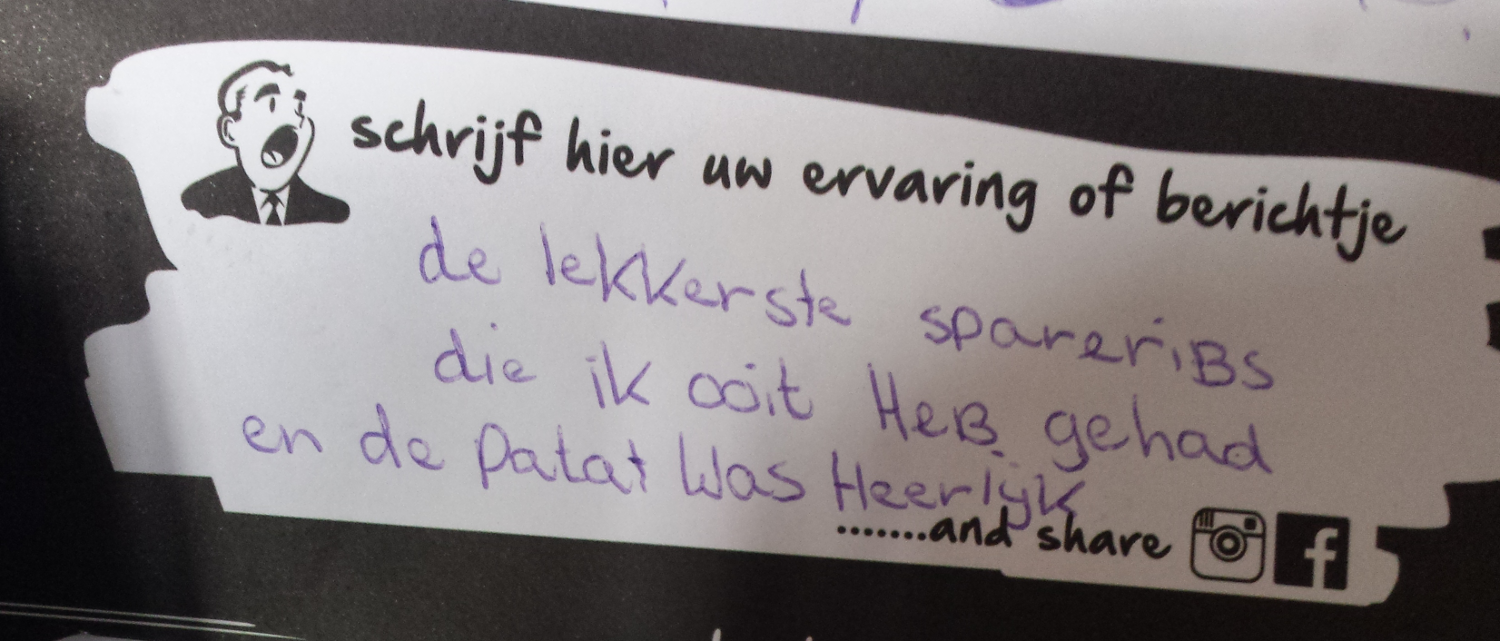 schrijf hier uw ervaring of berichtje
de lekkerste spareriBs
die ik ooit HeB gehad
en de patat Was Heerlijk
.......and share